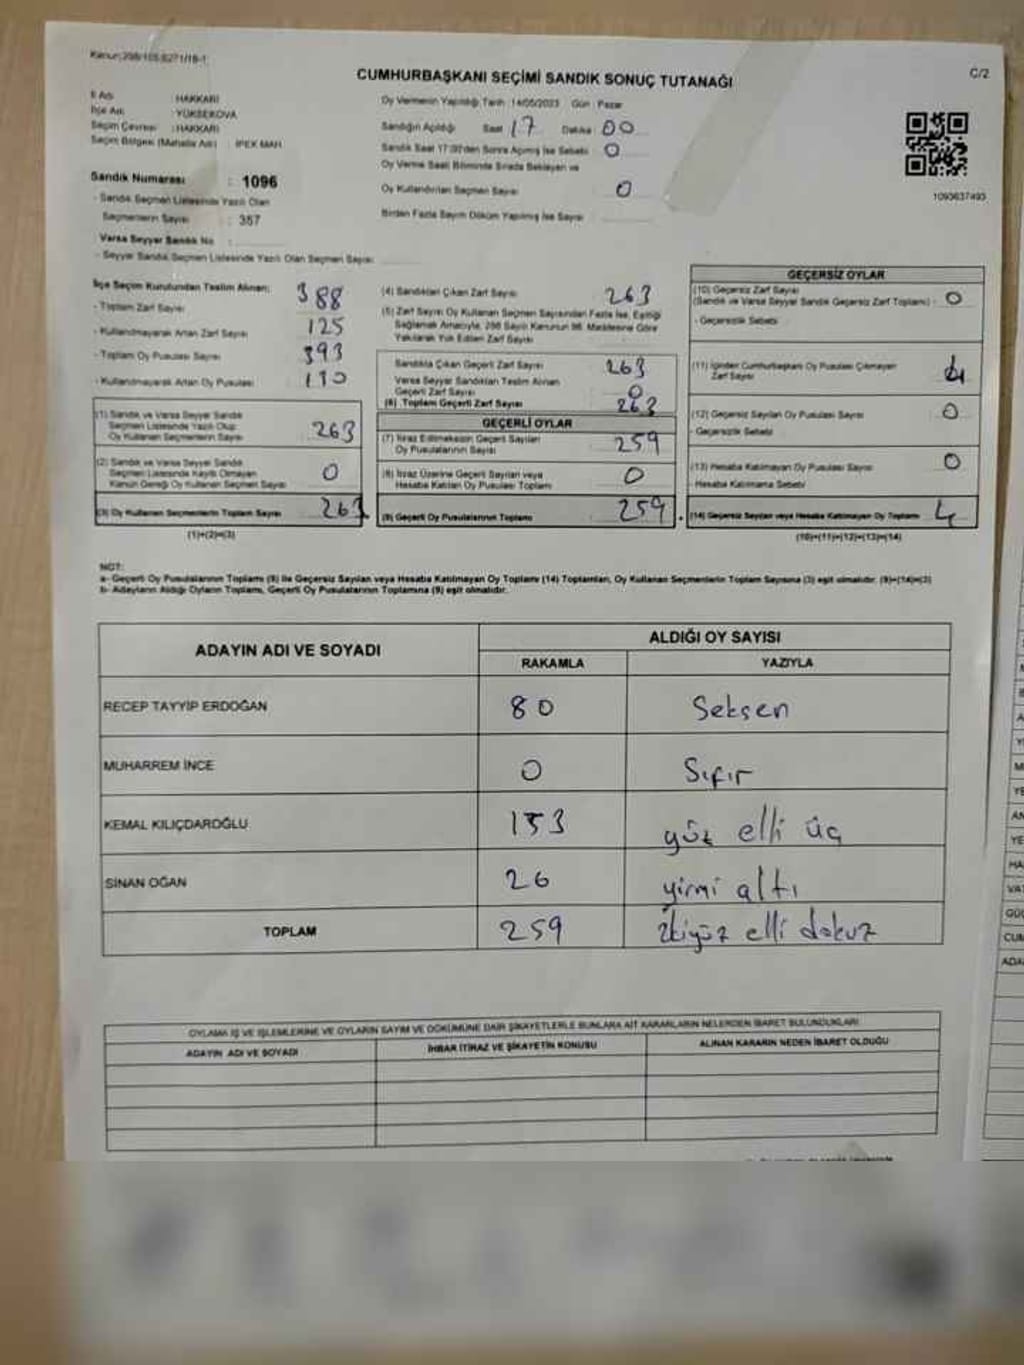 Kanun:298/105,6271/18-1
C/2
CUMHURBAŞKANI SEÇİMİ SANDIK SONUÇ TUTANAĞI
İl Adı : HAKKARİ
İlçe Adı : YÜKSEKOVA
Seçim Çevresi : HAKKARİ
Seçim Bölgesi (Mahalle Adı) : İPEK MAH
Sandık Numarası : 1096
- Sandık Seçmen Listesinde Yazılı Olan
Seçmenlerin Sayısı : 357
Varsa Seyyar Sandık No :
- Seyyar Sandık Seçmen Listesinde Yazılı Olan Seçmen Sayısı
Oy Vermenin Yapıldığı Tarih : 14/05/2023 Gün : Pazar
Sandığın Açıldığı Saat 17 Dakika 00
Sandık Saat 17:00'den Sonra Açılmış İse Sebebi 0
Oy Verme Saati Bitiminde Sırada Bekleyen ve
Oy Kullandırılan Seçmen Sayısı 0
Birden Fazla Sayım Döküm Yapılmış İse Sayısı
1093637493
İlçe Seçim Kurulundan Teslim Alınan;
- Toplam Zarf Sayısı 388
- Kullanılmayarak Artan Zarf Sayısı 125
- Toplam Oy Pusulası Sayısı 393
- Kullanılmayarak Artan Oy Pusulası 130
(1) Sandık ve Varsa Seyyar Sandık
Seçmen Listesinde Yazılı Olup
Oy Kullanan Seçmenlerin Sayısı 263
(2) Sandık ve Varsa Seyyar Sandık
Seçmen Listesinde Kayıtlı Olmayan
Kanun Gereği Oy Kullanan Seçmen Sayısı 0
(3) Oy Kullanan Seçmenlerin Toplam Sayısı 263
(1)+(2)=(3)
(4) Sandıktan Çıkan Zarf Sayısı 263
(5) Zarf Sayısı Oy Kullanan Seçmen Sayısından Fazla İse, Eşitliği
Sağlamak Amacıyla, 298 Sayılı Kanunun 98. Maddesine Göre
Yakılarak Yok Edilen Zarf Sayısı
Sandıkta Çıkan Geçerli Zarf Sayısı 263
Varsa Seyyar Sandıktan Teslim Alınan
Geçerli Zarf Sayısı 0
(6) Toplam Geçerli Zarf Sayısı 263
GEÇERLİ OYLAR
(7) İtiraz Edilmeksizin Geçerli Sayılan
Oy Pusulalarının Sayısı 259
(8) İtiraz Üzerine Geçerli Sayılan veya
Hesaba Katılan Oy Pusulası Toplamı 0
(9) Geçerli Oy Pusulalarının Toplamı 259
GEÇERSİZ OYLAR
(10) Geçersiz Zarf Sayısı
(Sandık ve Varsa Seyyar Sandık Geçersiz Zarf Toplamı) - 0
- Geçersizlik Sebebi :
(11) İçinden Cumhurbaşkanı Oy Pusulası Çıkmayan
Zarf Sayısı 4
(12) Geçersiz Sayılan Oy Pusulası Sayısı 0
- Geçersizlik Sebebi
(13) Hesaba Katılmayan Oy Pusulası Sayısı 0
- Hesaba Katılmama Sebebi
(14) Geçersiz Sayılan veya Hesaba Katılmayan Oy Toplamı 4
(10)+(11)+(12)+(13)=(14)
NOT:
a- Geçerli Oy Pusulalarının Toplamı (9) ile Geçersiz Sayılan veya Hesaba Katılmayan Oy Toplamı (14) Toplamları, Oy Kullanan Seçmenlerin Toplam Sayısına (3) eşit olmalıdır. (9)+(14)=(3)
b- Adayların Aldığı Oyların Toplamı, Geçerli Oy Pusulalarının Toplamına (9) eşit olmalıdır.
ADAYIN ADI VE SOYADI
ALDIĞI OY SAYISI
RAKAMLA YAZIYLA
RECEP TAYYİP ERDOĞAN 80 Seksen
MUHARREM İNCE 0 Sıfır
KEMAL KILIÇDAROĞLU 153 yüz elli üç
SİNAN OĞAN 26 yirmi altı
TOPLAM 259 ikiyüz elli dokuz
OYLAMA İŞ VE İŞLEMLERİNE VE OYLARIN SAYIM VE DÖKÜMÜNE DAİR ŞİKAYETLERLE BUNLARA AİT KARARLARIN NELERDEN İBARET BULUNDUKLARI
ADAYIN ADI VE SOYADI İHBAR İTİRAZ VE ŞİKAYETİN KONUSU ALINAN KARARIN NEDEN İBARET OLDUĞU